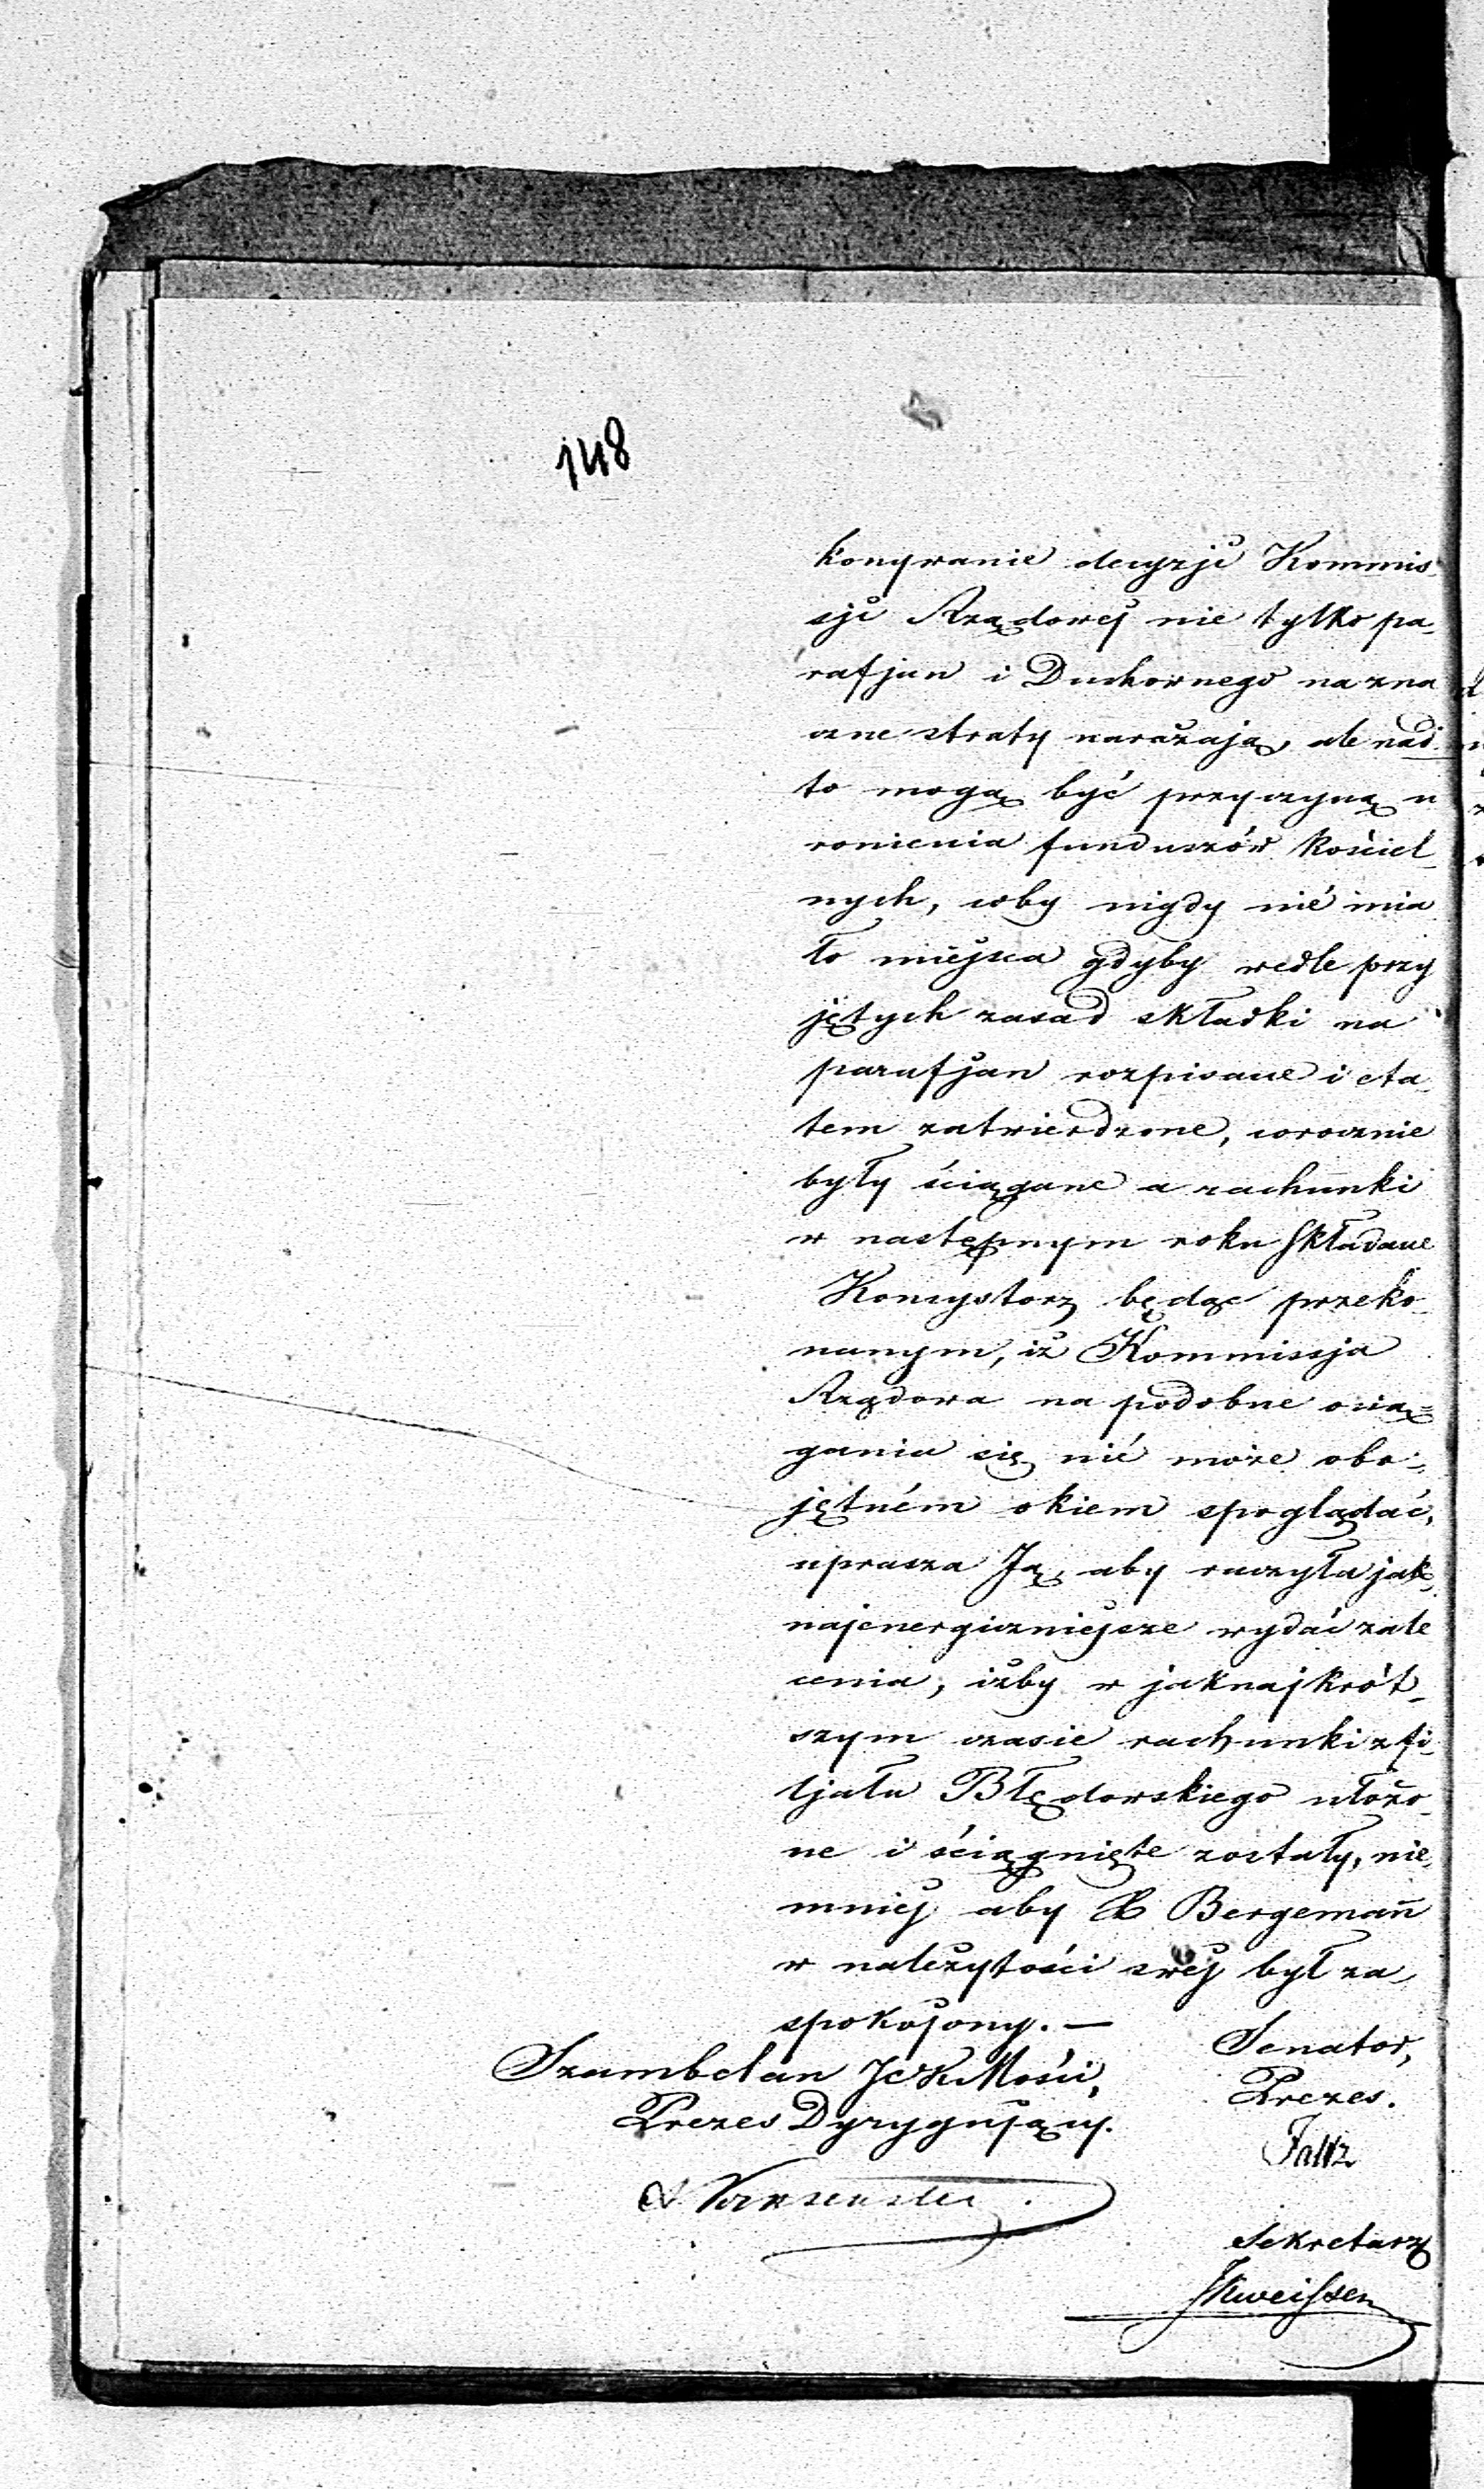 148
konywanie decyzji Kommis-
sji Rządowej nie tylko pa-
rafjan i Duchownego na zna
czne straty narażają, ale nad-
to mogą być przyczyną u
ronienia funduszów kościel-
nych, coby nigdy nié mia
ło miejsca gdyby wedle przy
jętych zasad składki na
parafjan rozpisane i eta-
tem zatwierdzone, corocznie
były ściągane a rachunki
w następnym roku składane
Konsystorz będąc przeko-
nanym, iż Kommissja
Rządowa na podobne ocią=
gania się nié może obo-
jętném okiem spoglądać,
uprasza Ją, aby raczyła jak-
najenergiczniejsze wydać zale
cenia, iżby w jaknajkrót-
szym czasie rachunki z fi-
ljału Błędowskiego ułożo-
ne i ściągnięte zostały, nie-
mniej aby X Bergemañ
w należytości swej był za-
spokojony. —
Szambelan JCK Mości,
Prezes Dyrygujący.
Senator,
Prezes.
Sekretarz